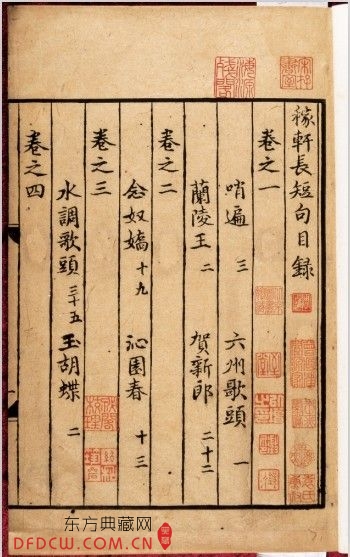 稼軒長短句目録
卷之一
哨遍 三 六州歌頭 一
蘭陵王 二 賀新郎 二十二
卷之二
念奴嬌 十九 沁園春 十三
卷之三
水調歌頭 三十五 玉胡蝶 二
卷之四
东方典藏网
DFDCW.COM.CN